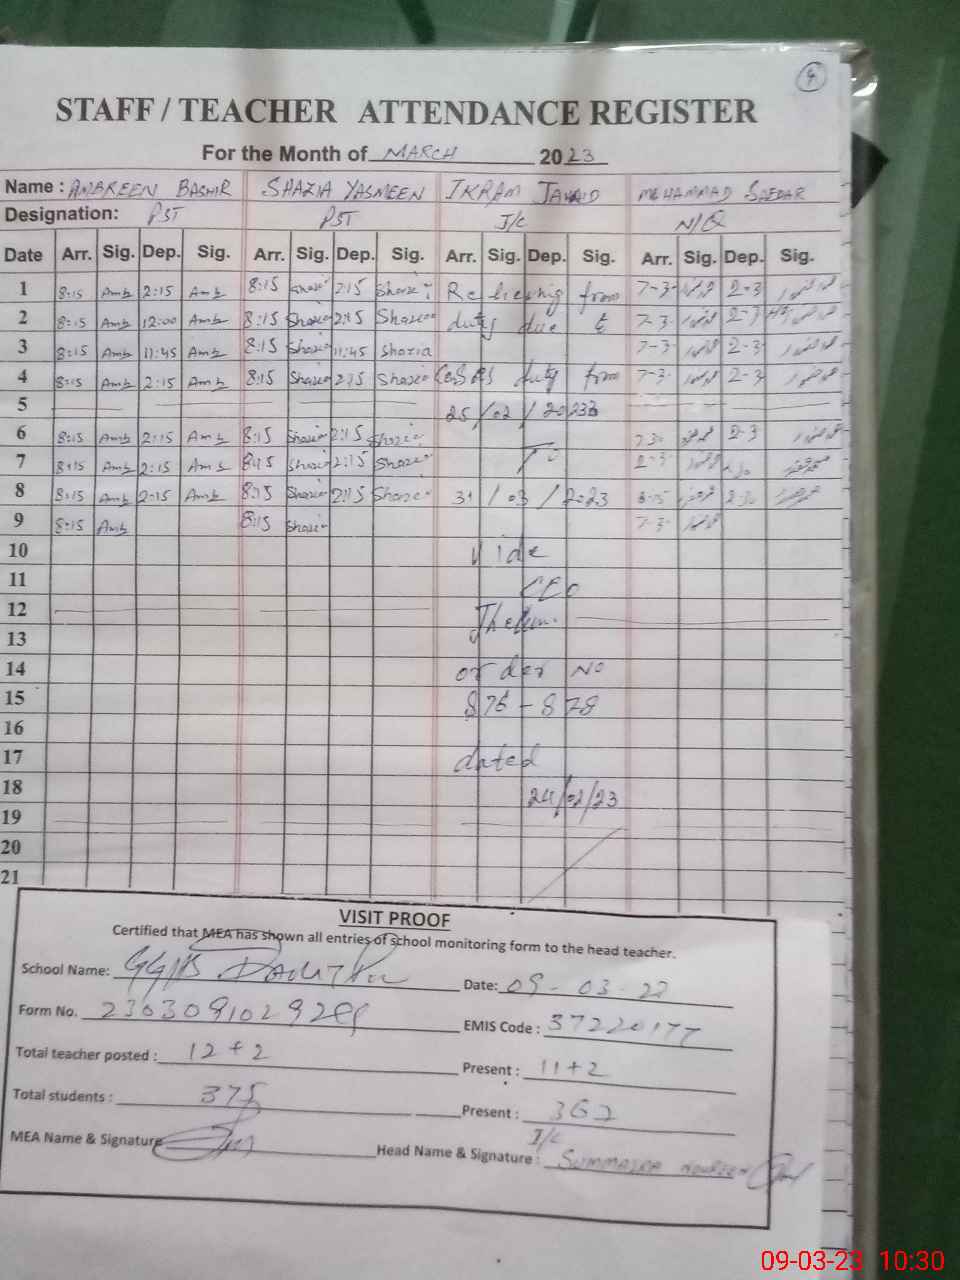 9
STAFF / TEACHER ATTENDANCE REGISTER
For the Month of MARCH 2023
Name : AMBREEN BASHIR SHAZIA YASMEEN IKRAM JAVAID MUHAMMAD SAFDAR
Designation: PST PST I/C N/Q
Date Arr. Sig. Dep. Sig. Arr. Sig. Dep. Sig. Arr. Sig. Dep. Sig. Arr. Sig. Dep. Sig.
1 8:15 Amb 2:15 Amb 8:15 Shazia 2:15 Shazia Relieving from 7-3- 2-3
2 8:15 Amb 12:00 Amb 8:15 Shazia 2:15 Shazia duty due to 7-3- 2-3
3 8:15 Amb 11:45 Amb 8:15 Shazia 11:45 Shazia 7-3- 2-3
4 8:15 Amb 2:15 Amb 8:15 Shazia 2:15 Shazia duty from 7-3- 2-3
5 25/02/2023
6 8:15 Amb 2:15 Amb 8:15 Shazia 2:15 Shazia 7-30 2-3
7 8:15 Amb 2:15 Amb 8:15 Shazia 2:15 Shazia To
8 8:15 Amb 2:15 Amb 8:15 Shazia 2:15 Shazia 31/03/2023
9 8:15 Amb 8:15 Shazia 7-3-
10 vide
11 CEO
12 Jhelum.
13
14 order No
15 876-878
16
17 dated
18 24/02/23
19
20
21
VISIT PROOF
Certified that MEA has shown all entries of school monitoring form to the head teacher.
School Name: GGPS Date: 09-03-23
Form No. EMIS Code : 37220177
Total teacher posted : 12+2 Present : 11+2
Total students : 375 Present : 362
I/C
MEA Name & Signature Head Name & Signature : SUMMAIRA NOUREEN
09-03-23 10:30